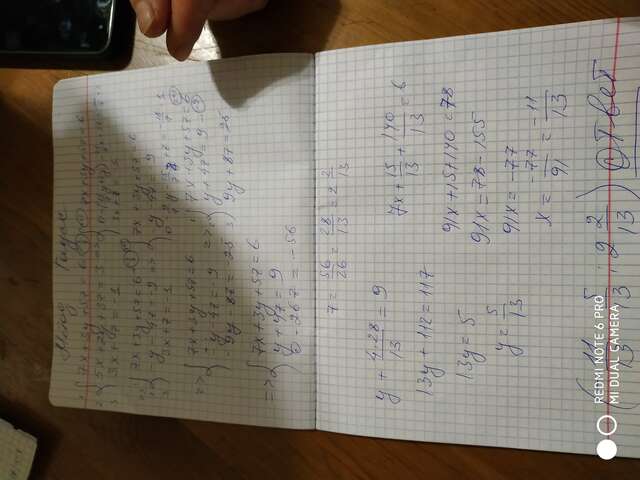 Метод Гаусс
7x+3y+5z=6
5x+2y+3z=3 =>
3x+z=-1
7x+3y+5z=6
-y-4z=-9 =>
3x+z=-1
7x+3y+5z=6
-y-4z=-9
=> 7x+3y+5z=6
-y-4z=-9 =>
-9y-8z=-25
7x+3y+5z=6
y+4z=9
9y+8z=25
=> 7x+3y+5z=6
y+4z=9
0-26z=-56
z=56/26=28/13=2 2/13
y+4·28/13=9
13y+112=117
13y=5
y=5/13
7x+15/13+140/13=6
91x+15+140=78
91x=78-155
91x=-77
x=-77/91=-11/13
(-11/13; 5/13; 2 2/13) Ответ
REDMI NOTE 6 PRO
MI DUAL CAMERA